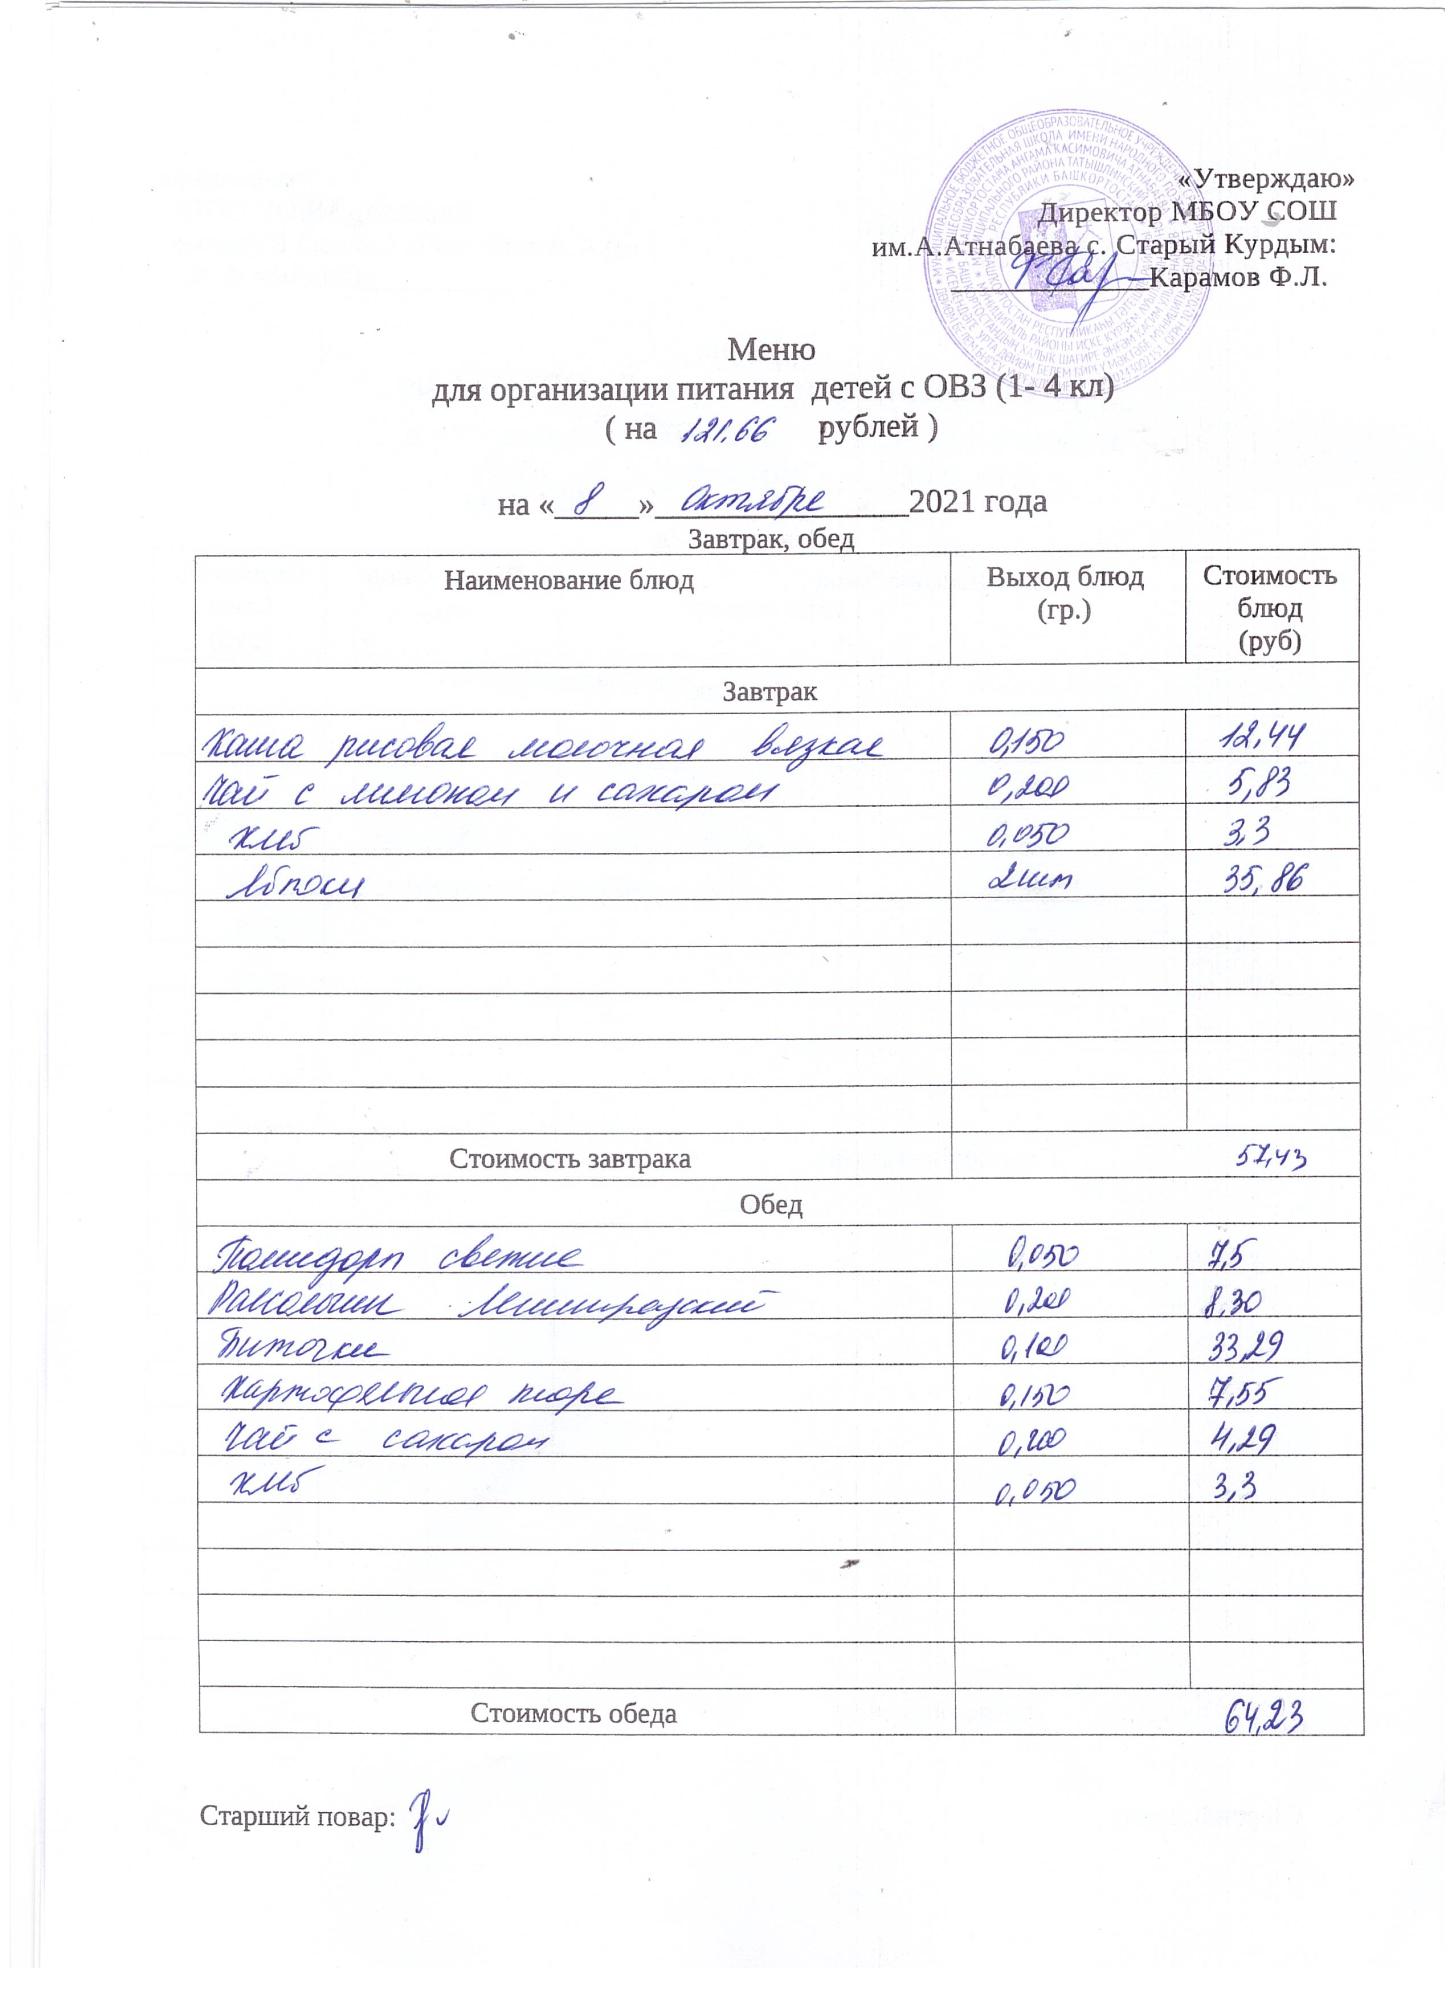 «Утверждаю»
Директор МБОУ СОШ
им.А.Атнабаева с. Старый Курдым:
Карамов Ф.Л.
Меню
для организации питания детей с ОВЗ (1- 4 кл)
( на 121.66 рублей )
на « 8 » Октября 2021 года
Завтрак, обед
Наименование блюд Выход блюд (гр.) Стоимость блюд (руб)
Завтрак
Каша рисовая молочная вязкая 0,150 12,44
Чай с лимоном и сахаром 0,200 5,83
хлеб 0,050 3,3
Яблоки 2шт 35,86
Стоимость завтрака 57,43
Обед
Помидоры свежие 0,050 7,5
Рассольник Ленинградский 0,200 8,30
Биточки 0,100 33,29
Картофельное пюре 0,150 7,55
Чай с сахаром 0,200 4,29
хлеб 0,050 3,3
Стоимость обеда 64,23
Старший повар: